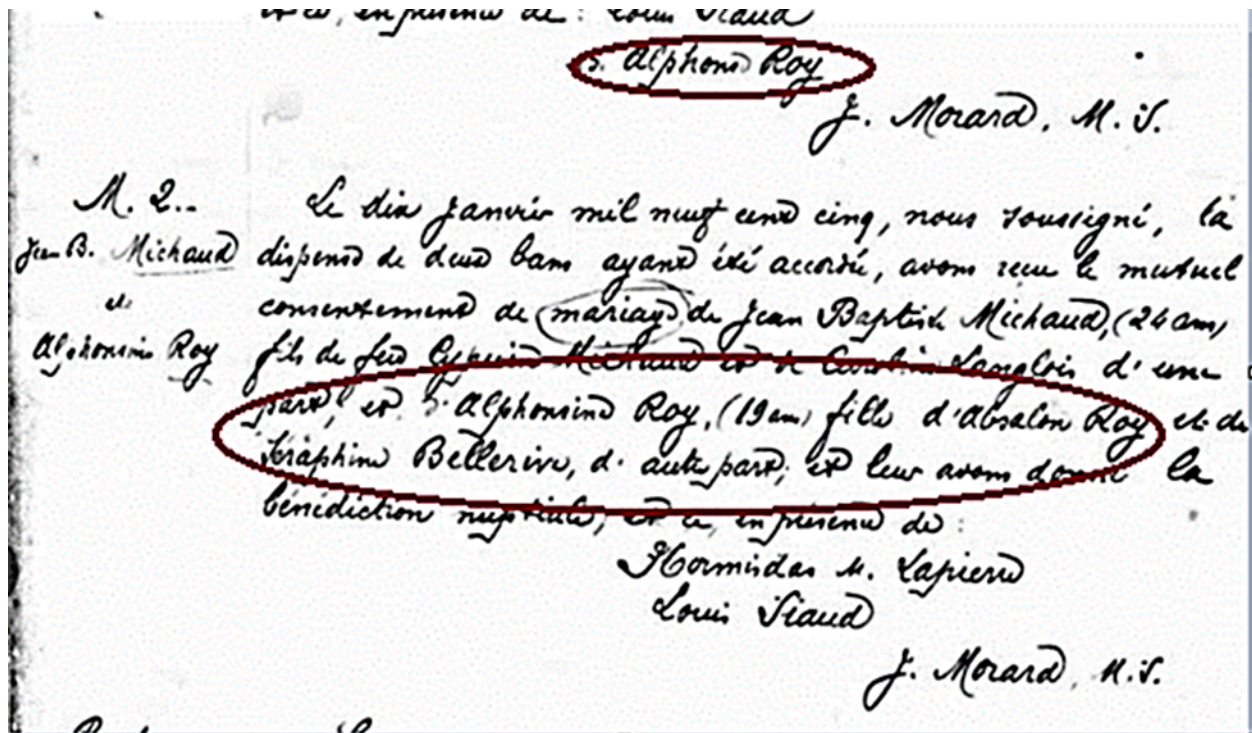 et ce, en présence de : Louis Siaud
s. Alphons Roy
J. Morard, M. S.
M. 2..
Jean B. Michaud
et
Alphonsine Roy
Le dix janvier mil neuf cent cinq, nous soussigné, la
dispense de deux bans ayant été accordée, avons reçu le mutuel
consentement de mariage de Jean Baptiste Michaud, (24 ans)
fils de feu Cyprien Michaud et de Caroline Langlois d'une
part, et d'Alphonsine Roy, (19 ans) fille d'Absalon Roy et de
Séraphine Bellerive, d'autre part; et leur avons donné la
bénédiction nuptiale, et ce, en présence de :
Hormisdas M. Lapierre
Louis Siaud
J. Morard, M. S.